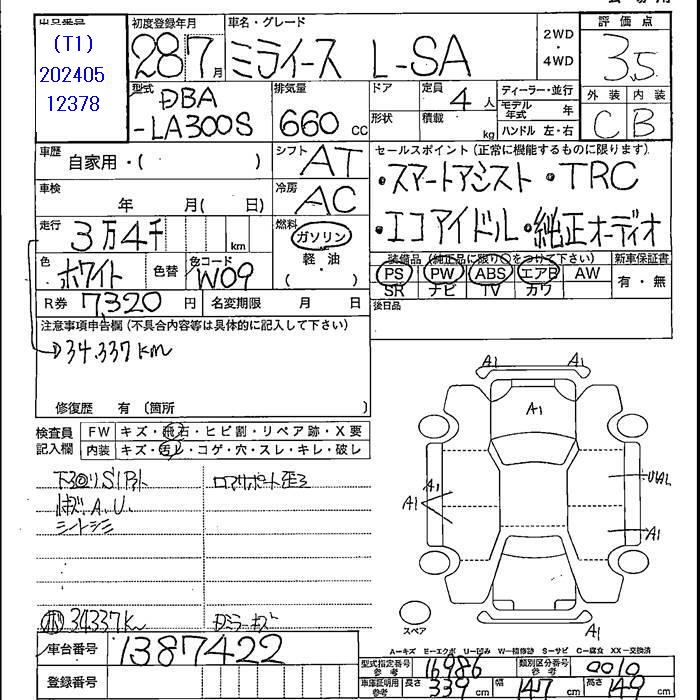 出品番号
(T1)
202405
12378
初度登録年月
28 7月
車名・グレード
ミライース L-SA
2WD
・
4WD
評価点
3.5
外装 内装
C B
型式
DBA
-LA300S
排気量
660 CC
ドア
形状
定員
4 人
積載
kg
ディーラー・並行
モデル年式 年
ハンドル 左・右
車歴
自家用・( )
シフト
AT
セールスポイント(正常に機能するものに限ります)
・スマートアシスト・TRC
・エコアイドル・純正オーディオ
車検
年 月( 日)
冷房
AC
走行
3万4千 km
燃料
ガソリン
軽・油
( )
色
ホワイト
色替
色コード
W09
装備品(純正品に限り○をつけて下さい)
新車保証書
PS PW ABS エアB AW
SR ナビ TV カワ
有・無
R券 7,320 円
名変期限 月 日
後日品
注意事項申告欄(不具合内容等は具体的に記入して下さい)
34.337km
修復歴 有 〔箇所 〕
検査員
記入欄
FW キズ・飛石・ヒビ割・リペア跡・X要
内装 キズ・汚レ・コゲ・穴・スレ・キレ・破レ
A.U.
シートシミ
34337k
車台番号
1387422
登録番号
A1 A1
A1
A1
A1
A1
A1
スペア
A-キズ E-エクボ U-凹み W-補修跡 S-サビ C-腐食 XX-交換済
型式指定番号
参考
16986
類別区分番号
参考
0010
車庫証明用
参考
長さ 339 cm
幅 147 cm
高さ 149 cm